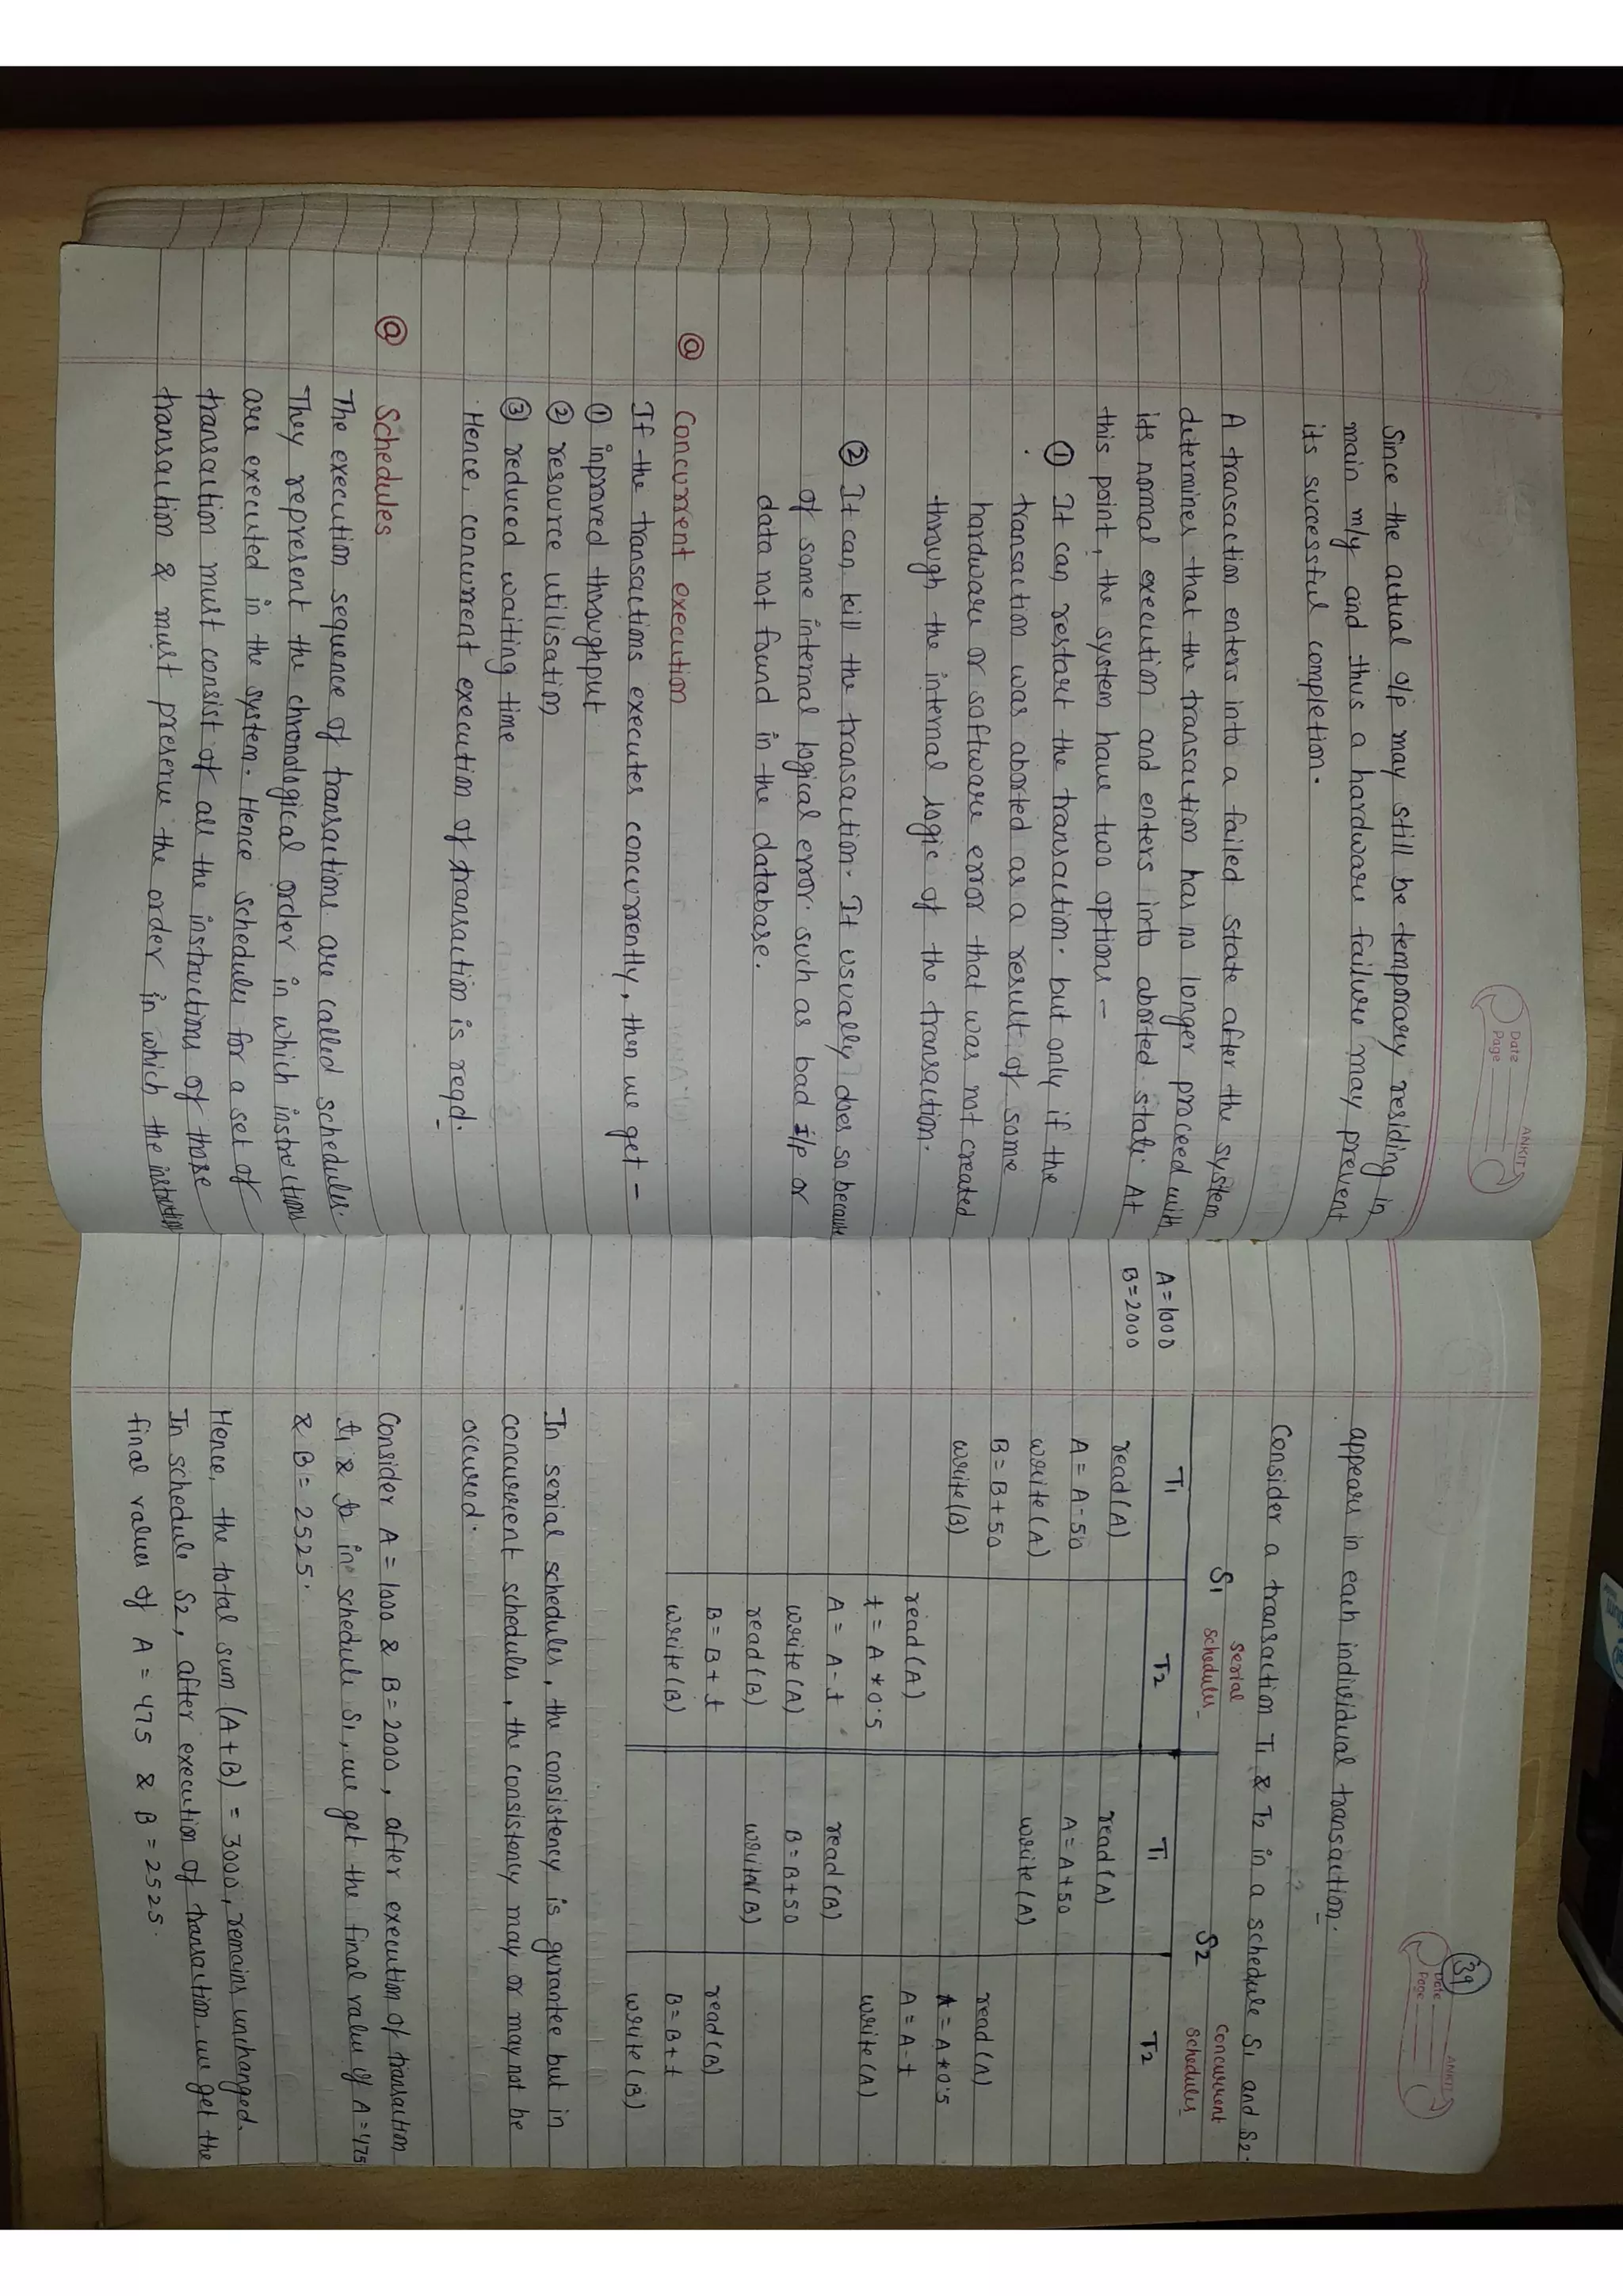 ANKIT'S
Date
Page
Since the actual o/p may still be temporary residing in
main m/y and thus a hardware failure may prevent
its successful completion.
A transaction enters into a failed state after the system
determines that the transaction has no longer proceed with
its normal execution and enters into aborted state. At
this point, the system have two options -
① It can restart the transaction. but only if the
transaction was aborted as a result of some
hardware or software error that was not created
through the internal logic of the transaction.
② It can kill the transaction. It usually does so because
of some internal logical error. such as bad i/p or
data not found in the database.
@ Concurrent execution
If the transactions executes concurrently, then we get -
① inproved throughput
② resource utilisation
③ reduced waiting time
Hence, concurrent execution of transaction is reqd.
@ Schedules
The execution sequence of transactions are called schedules.
They represent the chronological order in which instructions
are executed in the system. Hence schedules for a set of
transaction must consist of all the instructions of those
transaction & must preserve the order in which the instruction
39
ANKIT'S
Date
Page
appears in each individual transaction.
Consider a transaction T1 & T2 in a schedule S1 and S2.
S1 serial schedules S2 concurrent schedules
A=1000
B=2000
T1 T2 T1 T2
read(A) read(A)
A = A-50 A = A+50
write(A) write(A)
B = B+50 read(A)
write(B) t = A*0.5
read(A) A = A-t
t = A*0.5 write(A)
A = A-t read(B)
write(A) B = B+50
read(B) write(B)
B = B+t read(B)
write(B) B = B+t
write(B)
In serial schedules, the consistency is gurantee but in
concurrent schedules, the consistency may or may not be
occured.
Consider A = 1000 & B = 2000, after execution of transaction
t1 & t2 in schedule S1, we get the final value of A = 475
& B = 2525.
Hence, the total sum (A+B) = 3000, remains unchanged.
In schedule S2, after execution of transaction we get the
final values of A = 475 & B = 2525.